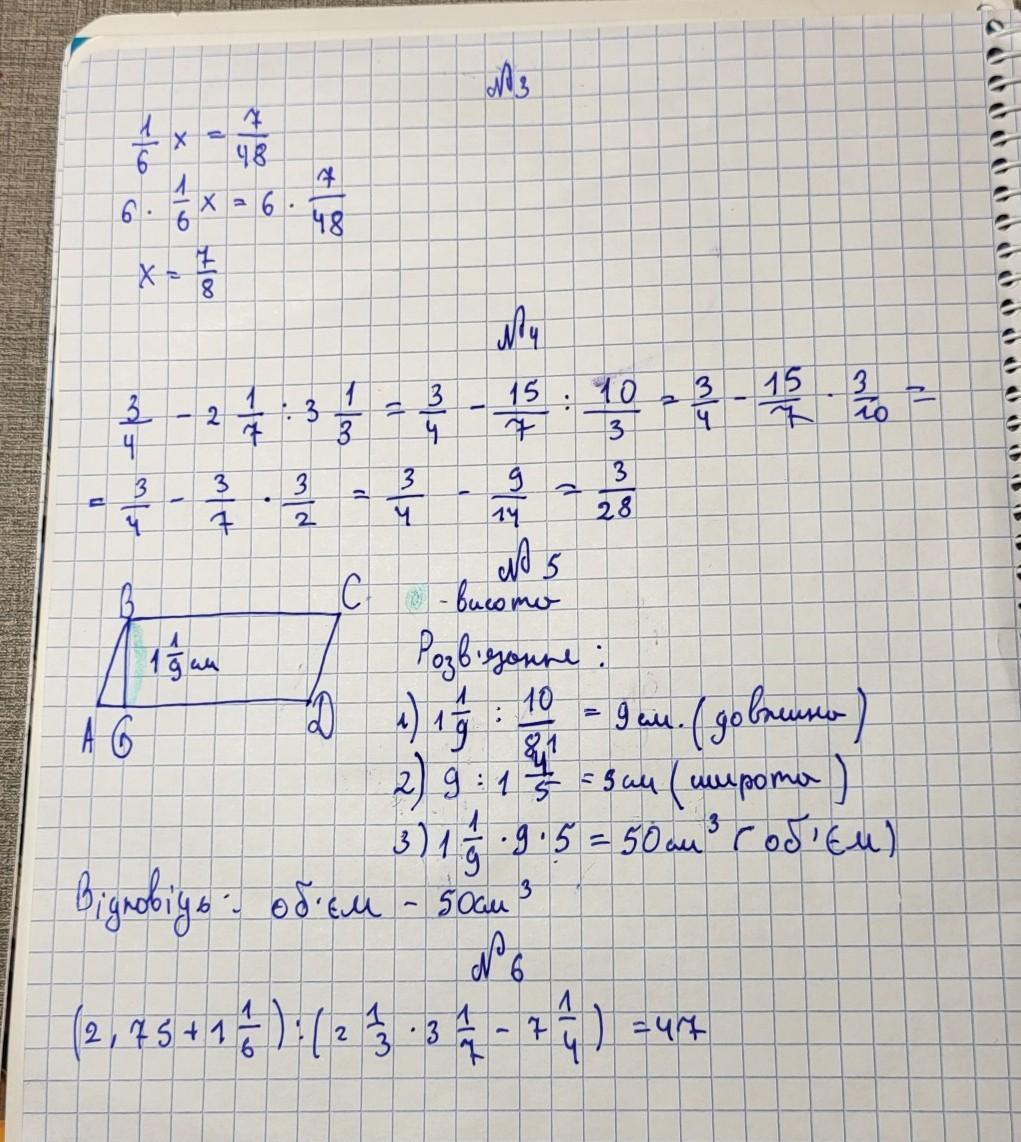 №3
1/6 x = 7/48
6 · 1/6 x = 6 · 7/48
x = 7/8
№4
3/4 - 2 1/7 : 3 1/3 = 3/4 - 15/7 : 10/3 = 3/4 - 15/7 · 3/10 =
= 3/4 - 3/7 · 3/2 = 3/4 - 9/14 = 3/28
№ 5
B C - висота
1 1/9 см Розв'язання :
A G D 1) 1 1/9 : 10/81 = 9 см. (довжина)
2) 9 : 1 4/5 = 5 см (широта)
3) 1 1/9 · 9 · 5 = 50 см³ (об'єм)
Відповідь: об'єм - 50см³
№ 6
(2,75 + 1 1/6) : (2 1/3 · 3 1/7 - 7 1/4) = 47